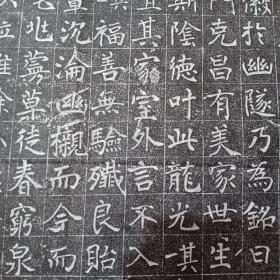 徽於幽隧乃為銘曰
門克昌有美家世生
斯陰德叶此龍光其
宜其家室外言不入
福善無驗殲良貽
沉淪幽櫬而今而
兆蔓草徒春窮泉